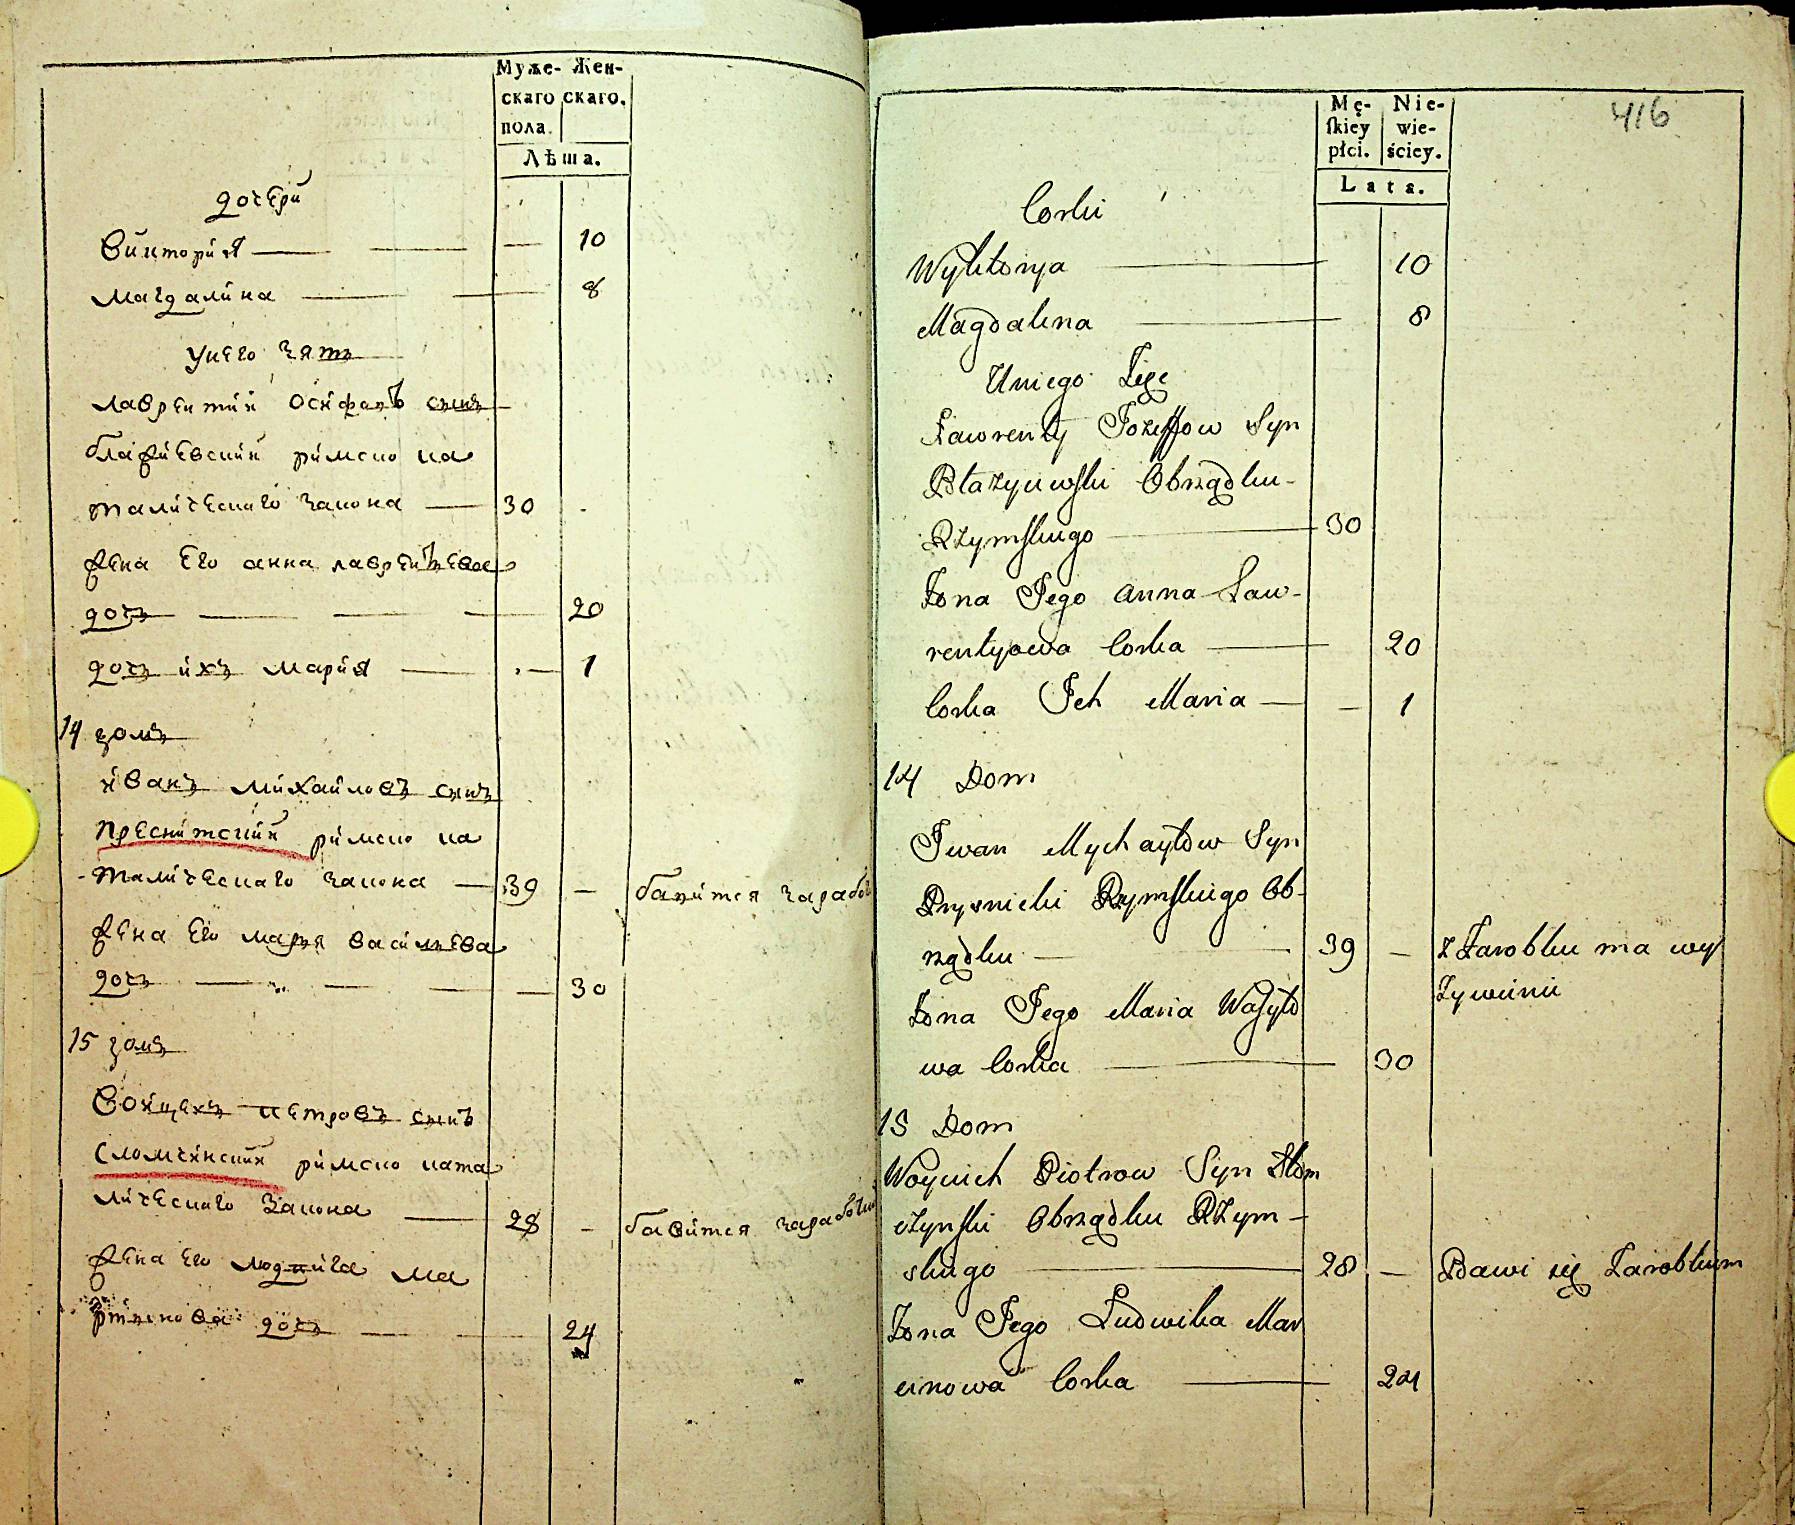 Муже- Жен-
скаго скаго.
пола.
Лѣта.
дочери
Виктория 10
Магдалина 8
У него зять
Лаврентий Осифовъ сынъ
Блажиевский римско ка
толическаго закона 30
жена его анна лаврентьева
дочь 20
дочь ихъ Мария 1
14 домъ
иванъ михайловъ сынъ
Преснитский римско ка
толическаго закона 39 — бавится зарабо
жена его марья васильева
дочь 30
15 домъ
Войцехъ петровъ сынъ
Сломчинский римско ката
лическаго закона 28 — бавится заработки
жена его людвига ма
ртинова дочь 24
416
Mę- Nie-
ſkiey wie-
płci. ściey.
Lata.
Corki
Wyktorya 10
Magdalena 8
Uniego Zięc
Ławrenty Jozeffow Syn
Błażyiewski Obrządku
Rzymskiego 30
Żona Jego Anna Ław-
rentyowa Corka 20
Corka Jch Maria 1
14 Dom
Iwan Mychayłow Syn
Rzymskiego Ob-
rządku 39 — z Zarobku ma wyż
żywienie
Żona Jego Maria Wasylo
wa Corka 30
15 Dom
Woyciech Piotrow Syn Słom
czynski Obrządku Rzym-
skiego 28 — Bawi się Zarobkiem
Żona Jego Ludwika Mar
cinowa Corka 24